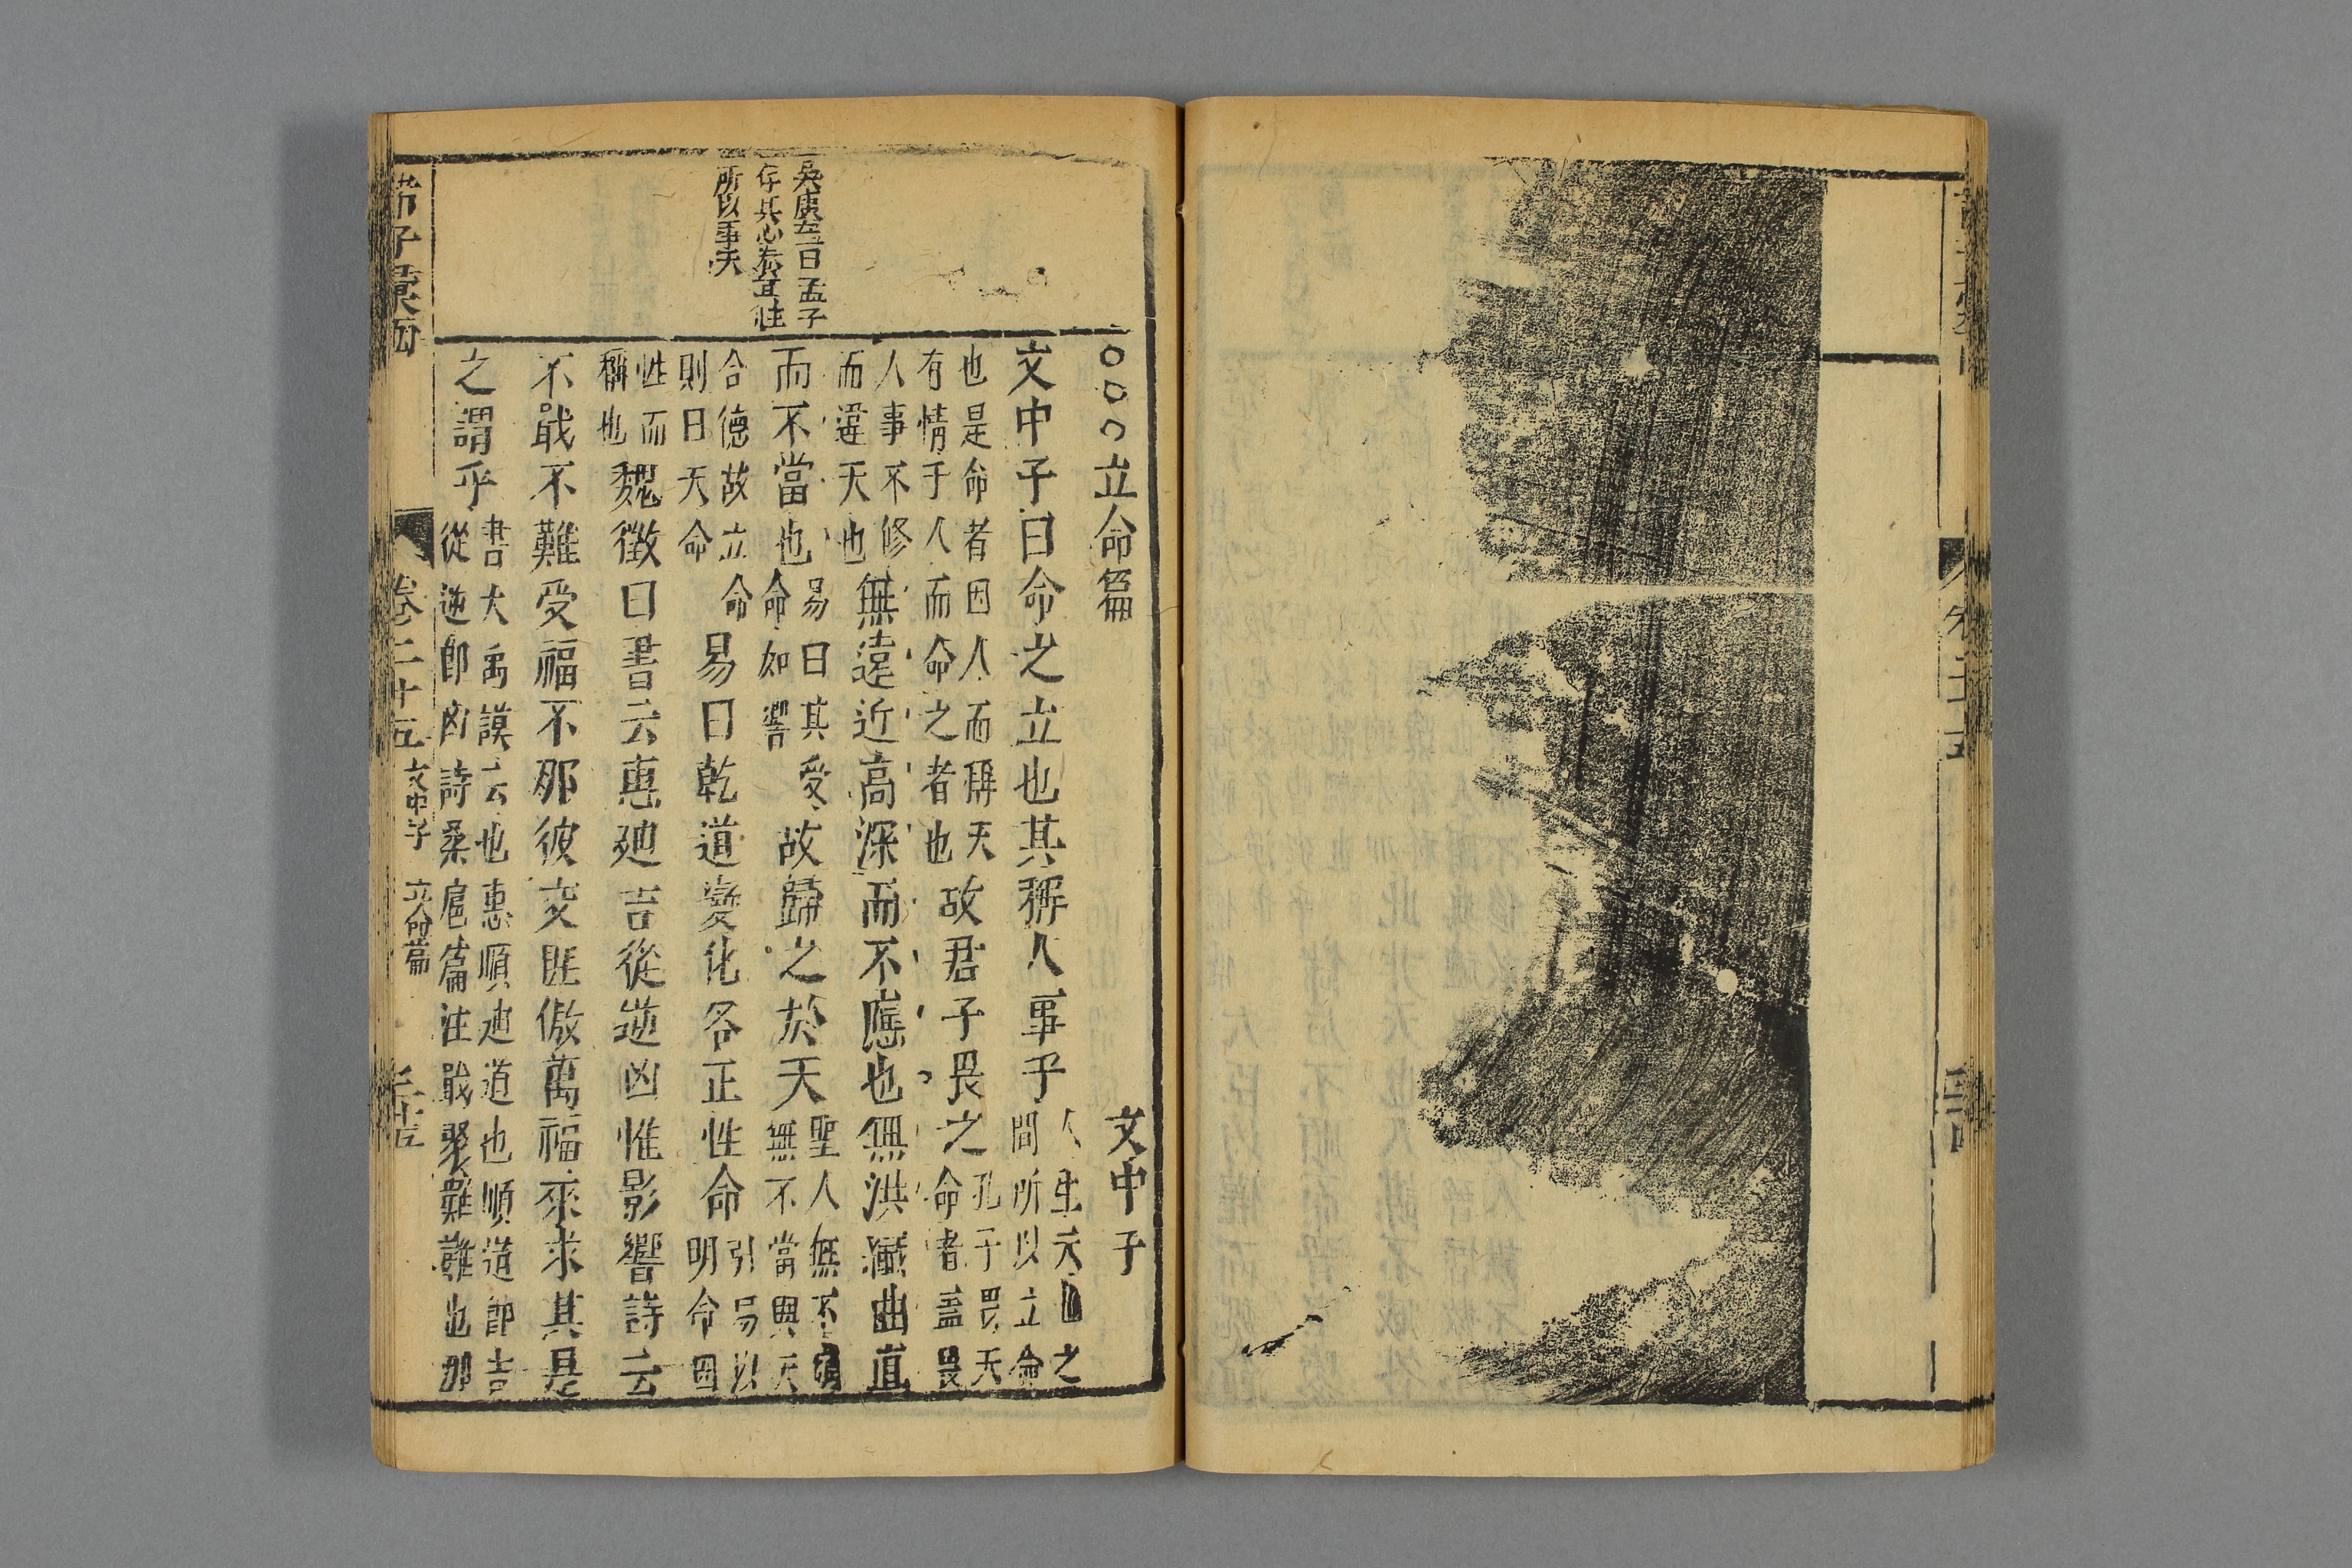 ○○○立命篇 文中子
文中子曰命之立也其稱人事乎
人生天地之
間所以立命
也是命者因人而稱天
有情于人而命之者也
故君子畏之
孔子畏天
命者盖畏
人事不修
而違天也
無遠近高深而不應也無洪纖曲直
而不當也
易曰其受
命如響
故歸之於天
聖人無不
無不當與天
合德故立命
則曰天命
易曰乾道變化各正性命
引易以
明命因
性而
稱也
魏徵曰書云惠廸吉從逆凶惟影響詩云
不戢不難受福不那彼交匪傲萬福來求其是
之謂乎
書大禹謨云也惠順廸道也順道即吉
從逆即凶詩桑扈篇注戢聚難難也那
曰孟子
存其心养其性
所以事天
諸子彙函
卷二十五
文中子
立命篇
三十五